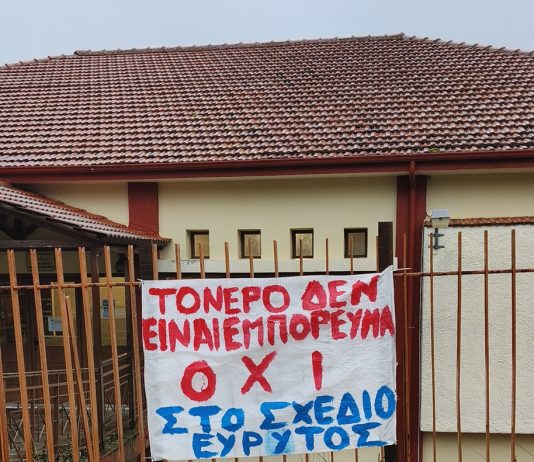 ΤΟ ΝΕΡΟ ΔΕΝ
ΕΙΝΑΙ ΕΜΠΟΡΕΥΜΑ
ΟΧΙ
ΣΤΟ ΣΧΕΔΙΟ
ΕΥΡΥΤΟΣ